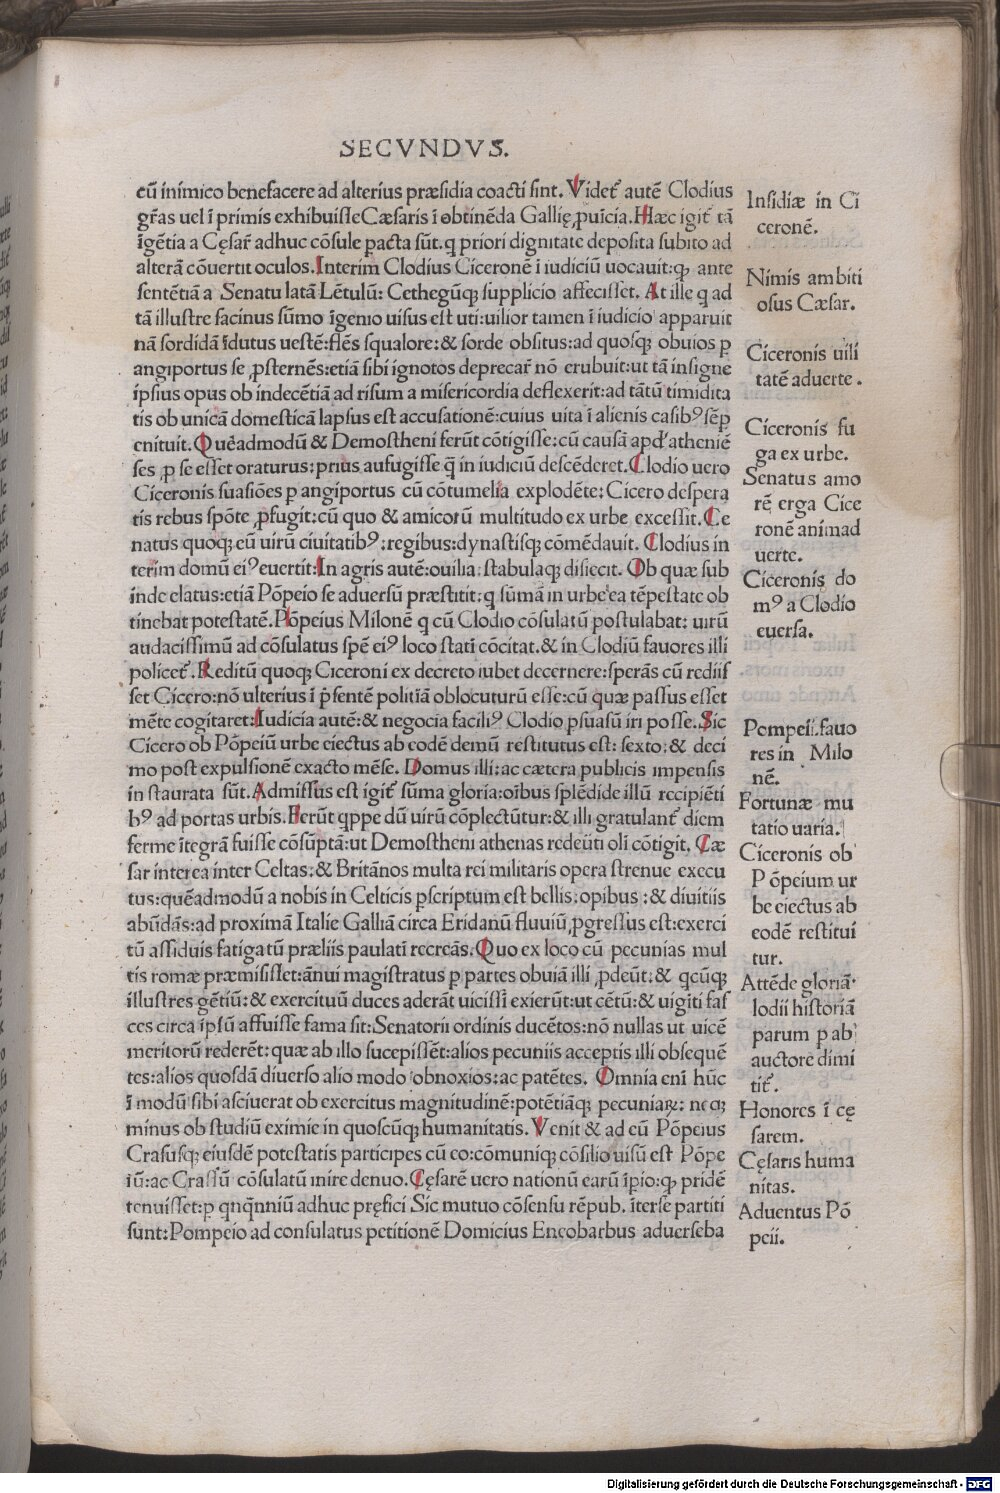 SECVNDVS.
cū inimico benefacere ad alterius præsidia coacti sint. Videt᷒ autē Clodius
gr̄as uel ī primis exhibuisse Cæsaris ī obtinēda Gallię ꝓuīcia. Hæc igit᷒ tā
īgētia a Cęsar̄ adhuc cōsule pacta sūt. q priori dignitate deposita subito ad
alterā cōuertit oculos. Interim Clodius Ciceronē ī iudiciū uocauit: ꝙ ante
sentētiā a Senatu latā Lētulū: Cethegūqꝫ supplicio affecisset. At ille q ad
tā illustre facinus sūmo īgenio uisus est uti: uilior tamen ī iudicio apparuit
nā sordidā īdutus uestē: flēs squalore: & sorde obsitus: ad quosqꝫ obuios p
angiportus se ꝓsternēs: etiā sibi ignotos deprecar̄ nō erubuit: ut tā insigne
ipsius opus ob indecētiā ad risum a misericordia deflexerit: ad tātū timidita
tis ob unicā domesticā lapsus est accusationē: cuius uita ī alienis casibꝰ sēp
enituit. Quēadmodū & Demostheni ferūt cōtigisse: cū causā apd᷒ atheniē
ses ꝓ se esset oraturus: prius aufugisse q̄ in iudiciū descēderet. Clodio uero
Ciceronis suasiōes p angiportus cū cōtumelia explodēte: Cicero despera
tis rebus spōte ꝓfugit: cū quo & amicorū multitudo ex urbe excessit. Se
natus quoqꝫ eū uirū ciuitatibꝰ: regibus: dynastisqꝫ cōmēdauit. Clodius in
terim domū eiꝰ euertit: In agris autē: ouilia: stabulaqꝫ disiecit. Ob quæ sub
inde elatus: etiā Pōpeio se aduersū præstitit: q sūmā in urbe ea tēpestate ob
tinebat potestatē. Pōpeius Milonē q cū Clodio cōsulatū postulabat: uirū
audacissimū ad cōsulatus spē eiꝰ loco stati cōcitat. & in Clodiū fauores illi
policet᷒. Reditū quoqꝫ Ciceroni ex decreto iubet decernere: sperās cū rediis
set Cicero: nō ulterius ī p̄sentē politiā oblocuturū esse: cū quæ passus esset
mēte cogitaret: Iudicia autē: & negocia faciliꝰ Clodio psuasū iri posse. Sic
Cicero ob Pōpeiū urbe eiectus ab eodē demū restitutus est: sexto: & deci
mo post expulsionē exacto mēse. Domus illi: ac cætera publicis impensis
in staurata sūt. Admissus est igit᷒ sūma gloria: oībus splēdide illū recipiēti
bꝰ ad portas urbis. Ferūt qppe dū uirū cōplectūtur: & illi gratulant᷒ diem
ferme ītegrā fuisse cōsūptā: ut Demostheni athenas redeūti oli cōtigit. Cæ
sar interea inter Celtas: & Britānos multa rei militaris opera strenue execu
tus: quēadmodū a nobis in Celticis pscriptum est bellis: opibus: & diuitiis
abūdās: ad proximā Italie Galliā circa Eridanū fluuiū ꝓgressus est: exerci
tū assiduis fatigatū præliis paulati recreās. Quo ex loco cū pecunias mul
tis romæ præmisisset: ānui magistratus p partes obuiā illi ꝓdeūt: & qcūqꝫ
illustres gētiū: & exercituū duces aderāt uicissī exierūt: ut cētū: & uigīti fas
ces circa ipsū affuisse fama sit: Senatorii ordinis ducētos: nō nullas ut uicē
meritorū rederēt: quæ ab illo sucepissēt: alios pecuniis acceptis illi obsequē
tes: alios quosdā diuerso alio modo obnoxios: ac patētes. Omnia eni hūc
ī modū sibi asciuerat ob exercitus magnitudinē: potētiāqꝫ pecuniaꝝ: neqꝫ
minus ob studiū eximie in quoscūqꝫ humanitatis. Venit & ad eū Pōpeius
Crasusqꝫ eiusdē potestatis participes cū eo: cōmuniqꝫ cōsilio uisū est Pōpe
iū: ac Crassū cōsulatū inire denuo. Cęsarē uero nationū earū īpio: ꝙ pridē
tenuisset: p qnqnniū adhuc pręfici Sic mutuo cōsensu rēpub. īterse partiti
sunt: Pompeio ad consulatus petitionē Domicius Enobarbus aduerseba
Insidiæ in Ci
ceronē.
Nimis ambiti
osus Cæsar.
Ciceronis uili
tatē aduerte.
Ciceronis fu
ga ex urbe.
Senatus amo
rē erga Cice
ronē animad
uerte.
Ciceronis do
mꝰ a Clodio
euersa.
Pompeii. fauo
res in Milo
nē.
Fortunæ mu
tatio uaria.
Ciceronis ob
Pōpeium ur
be eiectus ab
eodē restitui
tur.
Attēde gloriā
lodii historiā
parum p ab
auctore dimi
tit᷒.
Honores ī cę
sarem.
Cęsaris huma
nitas.
Aduentus Pō
peii.
Digitalisierung gefördert durch die Deutsche Forschungsgemeinschaft - DFG